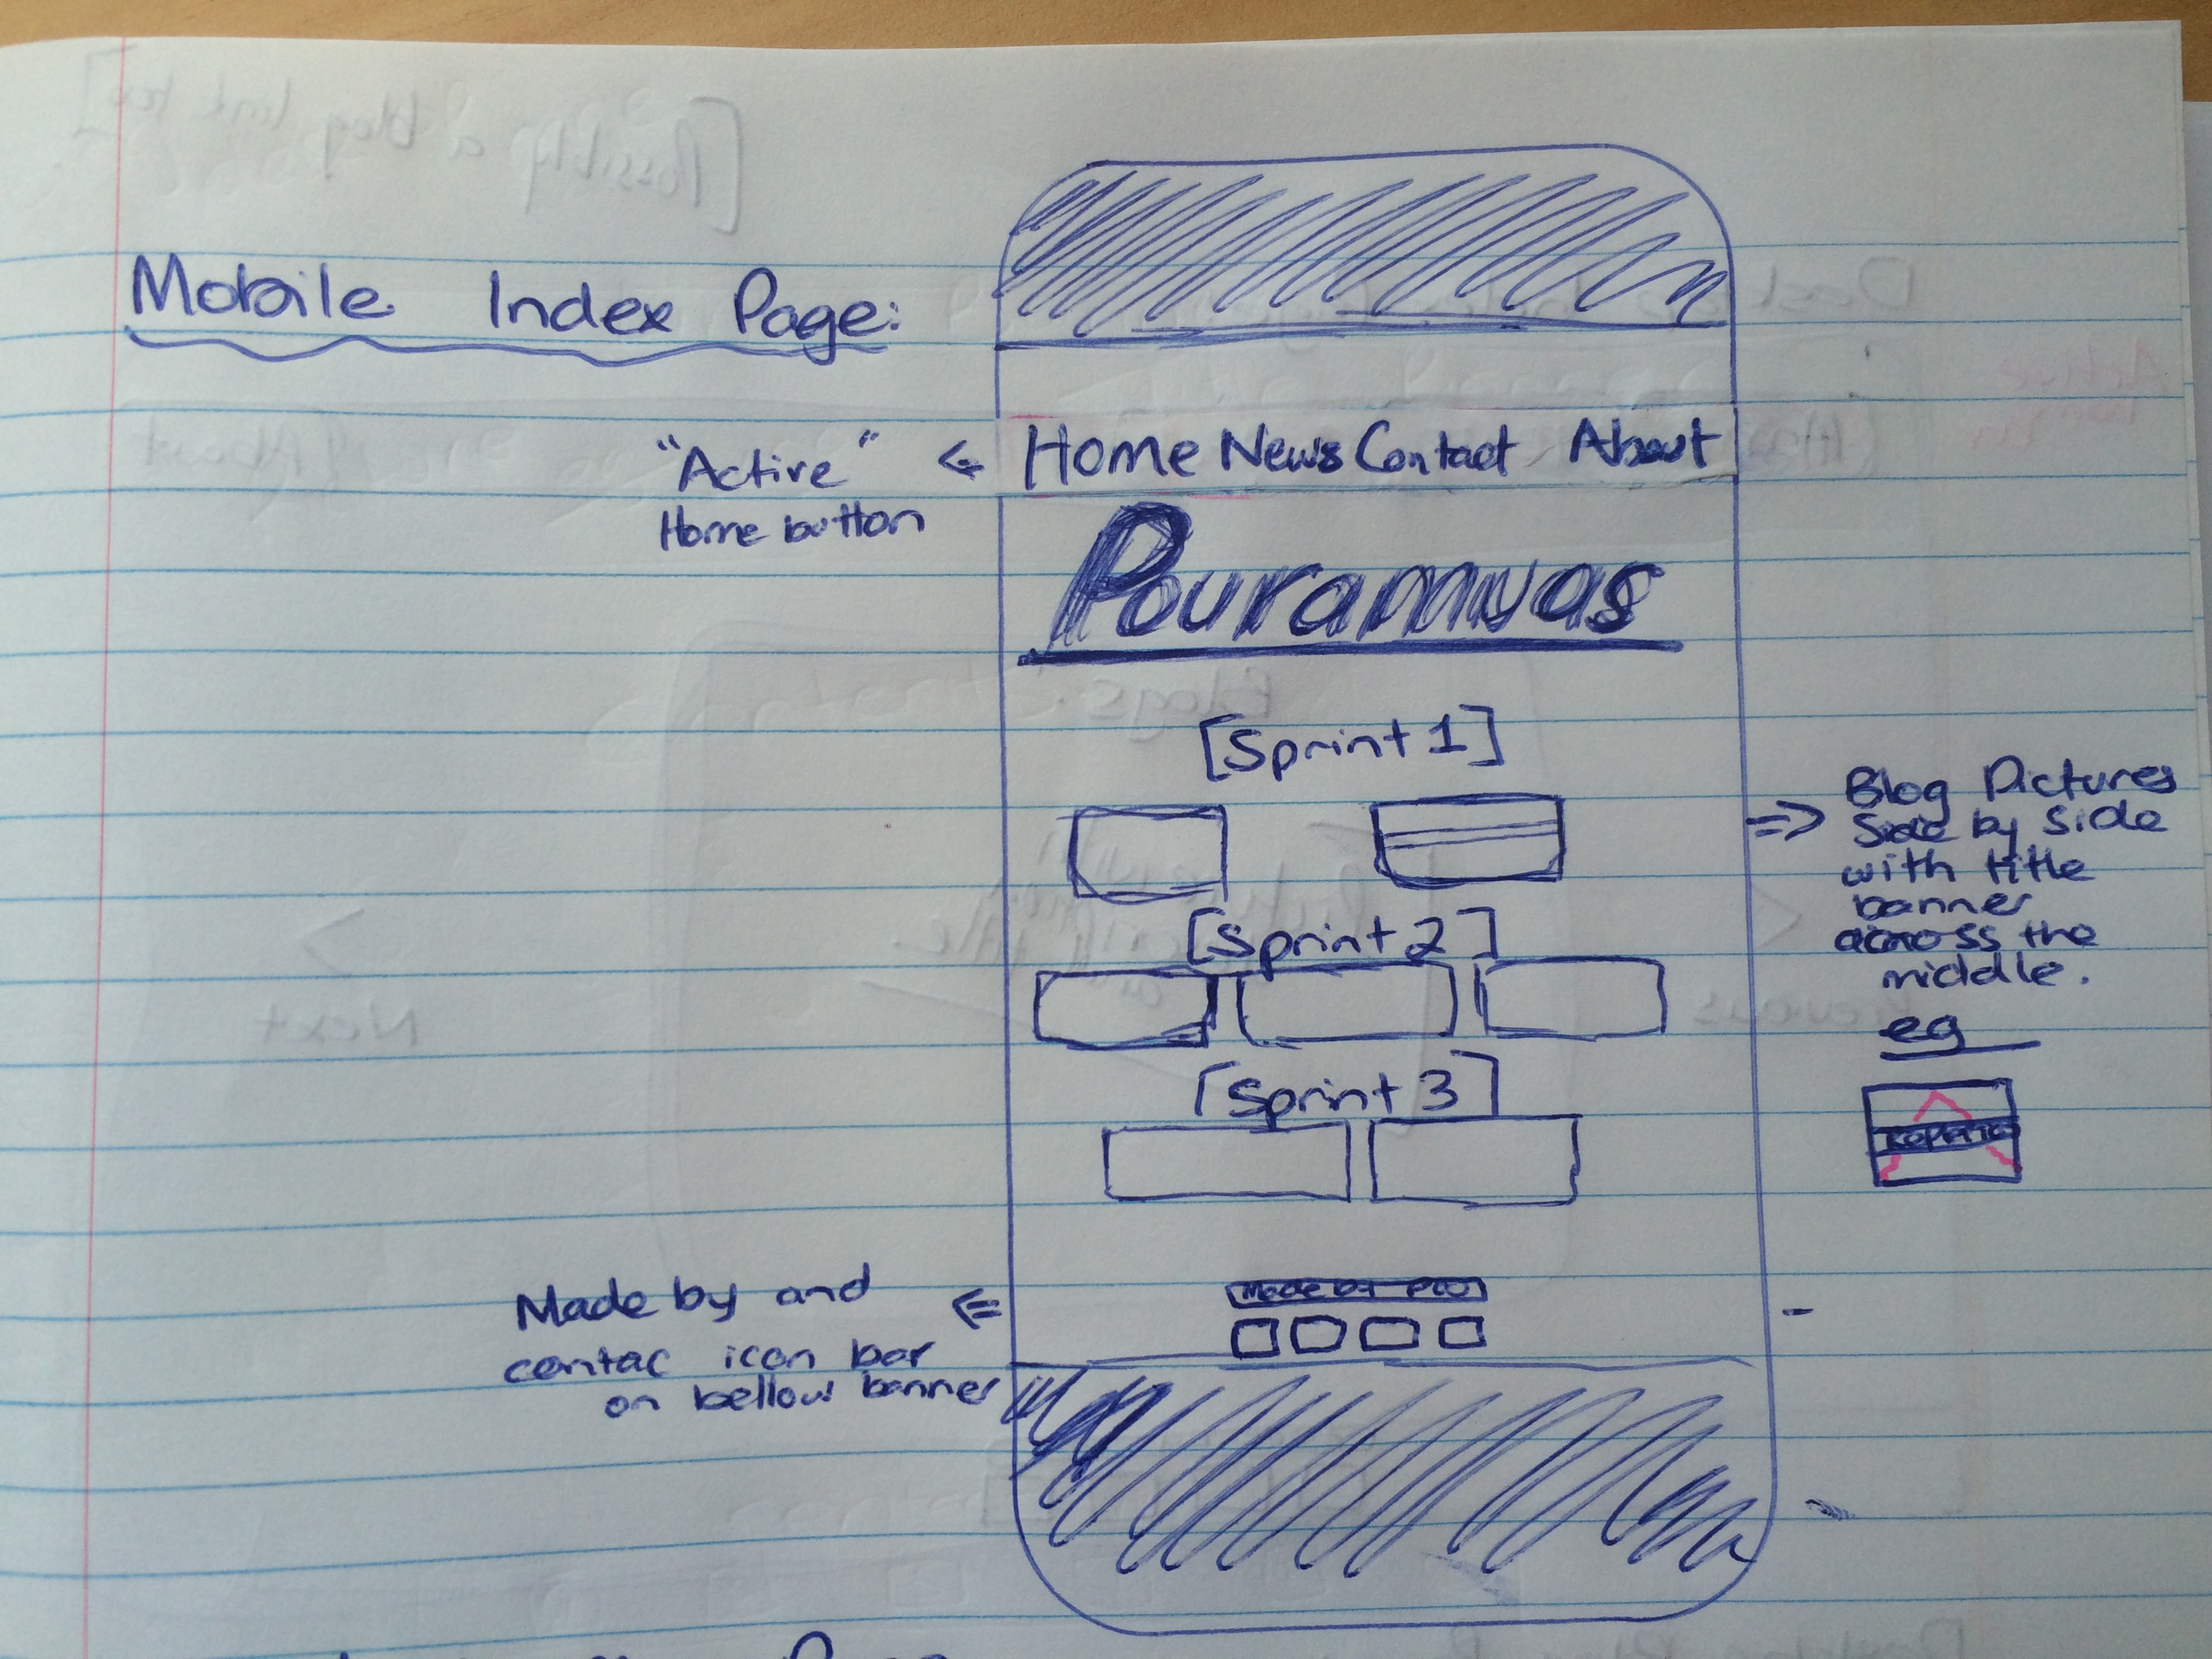 Mobile Index Page:
"Active"
Home button
Home News Contact About
Pouramuas
[Sprint 1]
Blog Pictures
Side by side
with title
banner
across the
middle.
eg
[Sprint 2]
[Sprint 3]
Made by and
contac icon bar
on bellow banner
Made by